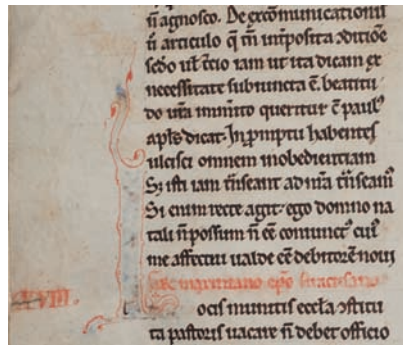 n̄ agnosco. De excōmunicationū
n̄ articulo q̄ tn̄ īmposita ꝯditiōe
ul̄ t̄cio iam ut ita dicam ex
necessitate subiuncta ē. beatitu
do ur̄a inmīto queritur ē paulꝰ
apl̄s dicat. In promptu habentes
ulcisci omnem inobedientiam
Sꝫ isti iam t̄nseant ad nr̄a t̄nseamꝰ
Si enim recte agit᷑ ego domno na
tali n̄ possum n̄ eē comunicꝰ cuiꝰ
me affectui ualde eē debitorē noui
Gr̄e maximiano ep̄o siracusano
XVIII.
Locis munitis eccl̄a ꝯstitu
ta pastoris uacare n̄ debet officio